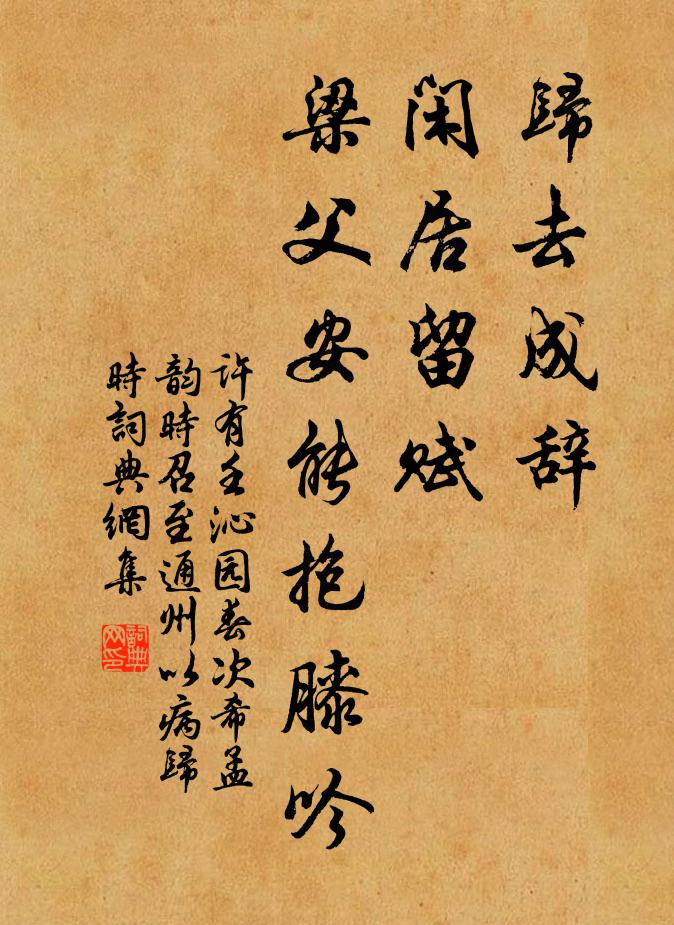 歸去成辞
闲居留赋
梁父安能抱膝吟
许有壬沁园春次希孟
韵時召至通州以病歸
時詞典網集
詞典
网印